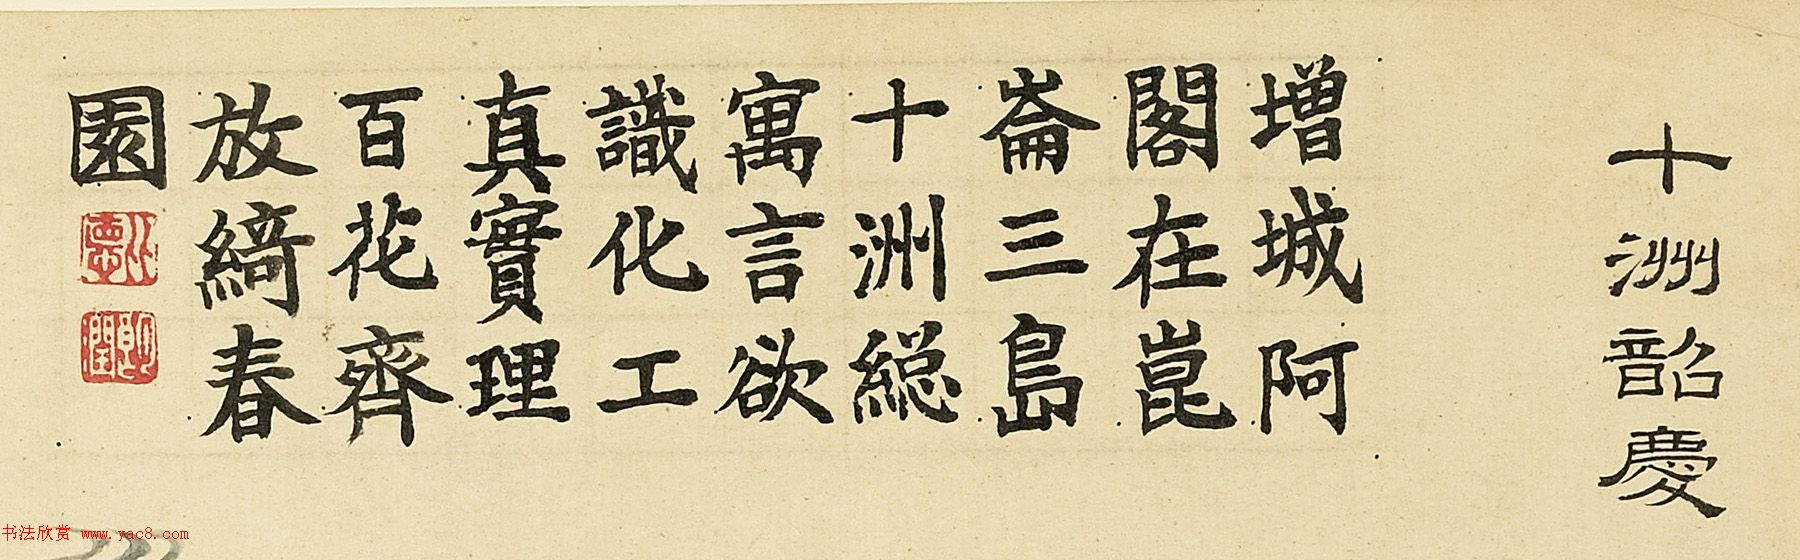 十洲韶慶
增城阿
閣在崑
崙三島
十洲緫
寓言欲
識化工
真實理
百花齊
放綺春
園
书法欣赏 www.yac8.com